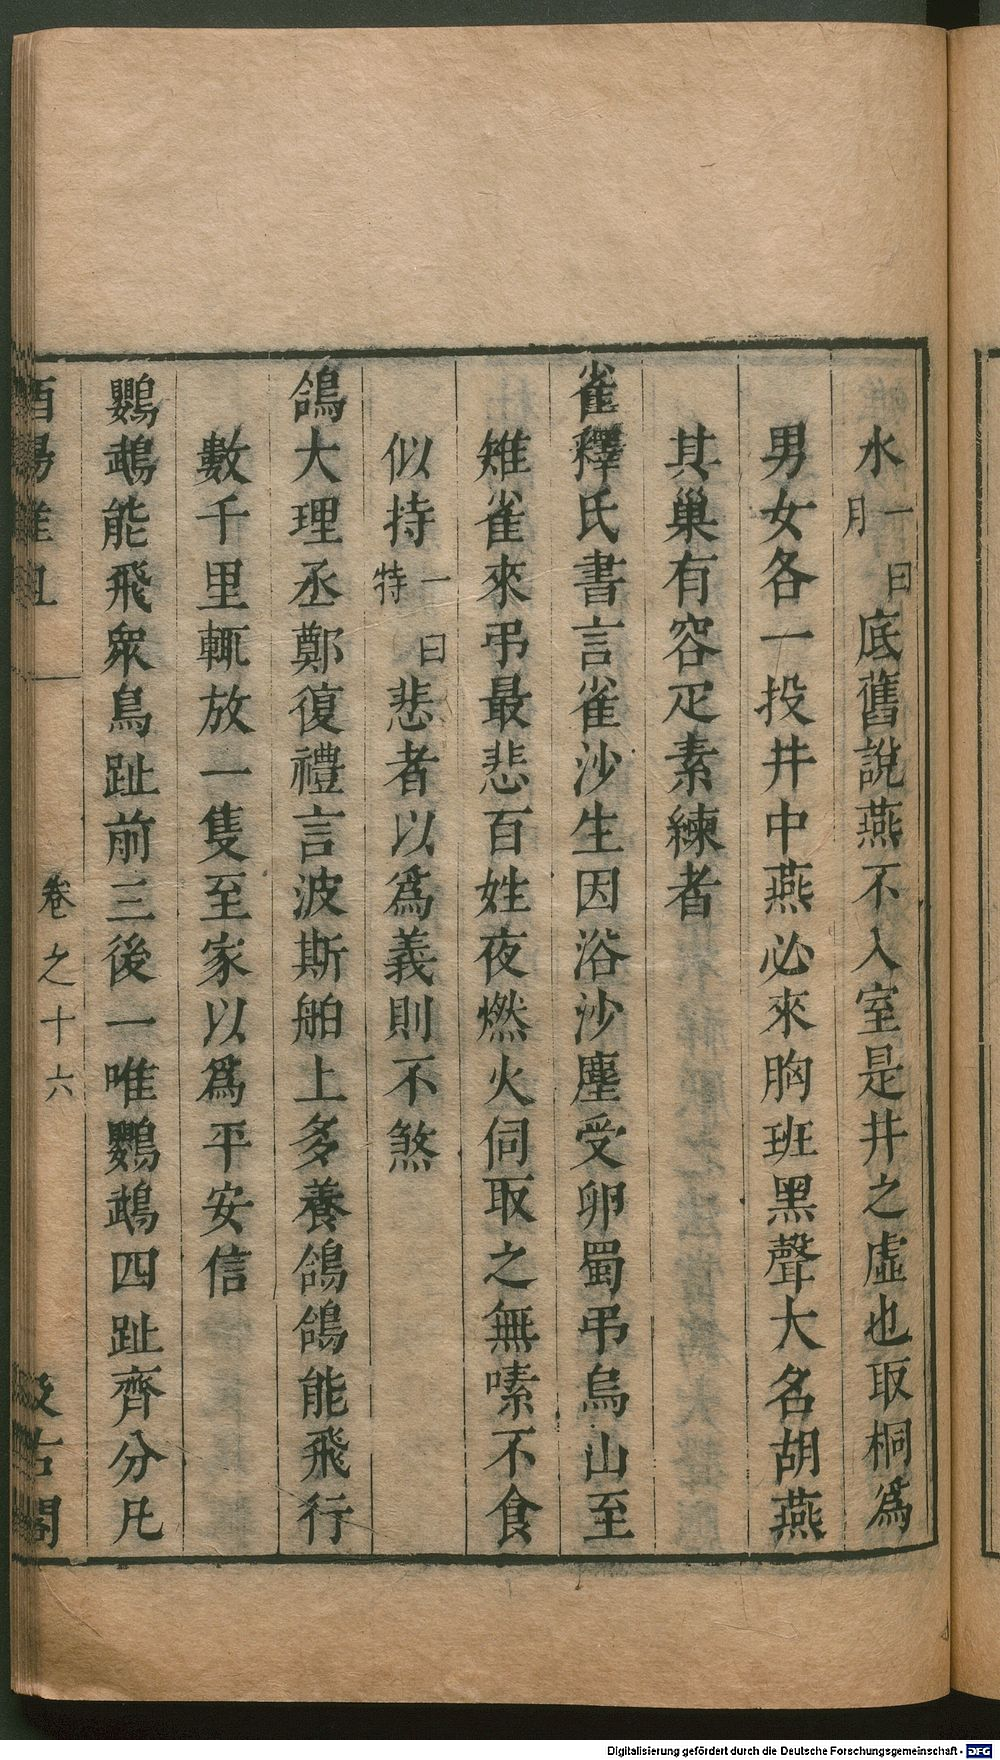 水一曰月底舊說燕不入室是井之虛也取桐爲
男女各一投井中燕必來胸班黑聲大名胡燕
其巢有容疋素練者
雀釋氏書言雀沙生因浴沙塵受卵蜀弔烏山至
雉雀來弔最悲百姓夜燃火伺取之無嗉不食
似持一曰特悲者以爲義則不煞
鴿大理丞鄭復禮言波斯舶上多養鴿鴿能飛行
數千里輒放一隻至家以爲平安信
鸚鵡能飛衆鳥趾前三後一唯鸚鵡四趾齊分凡
酉陽雜俎 卷之十六 汲古閣
Digitalisierung gefördert durch die Deutsche Forschungsgemeinschaft - DFG